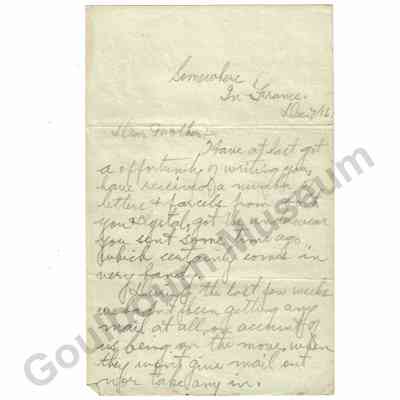 Somewhere
In France.
Dec 7/16
Dear Mother,
Have at last got
a opportunity of writing you,
have received a number
letters & parcels from
you & got the underwear
you sent some time ago,
which certainly comes in
very handy.
During the last few weeks
we haven't been getting any
mail at all, on account of
us being on the move, when
they won't give mail out
nor take any in.
Goulburn Museum